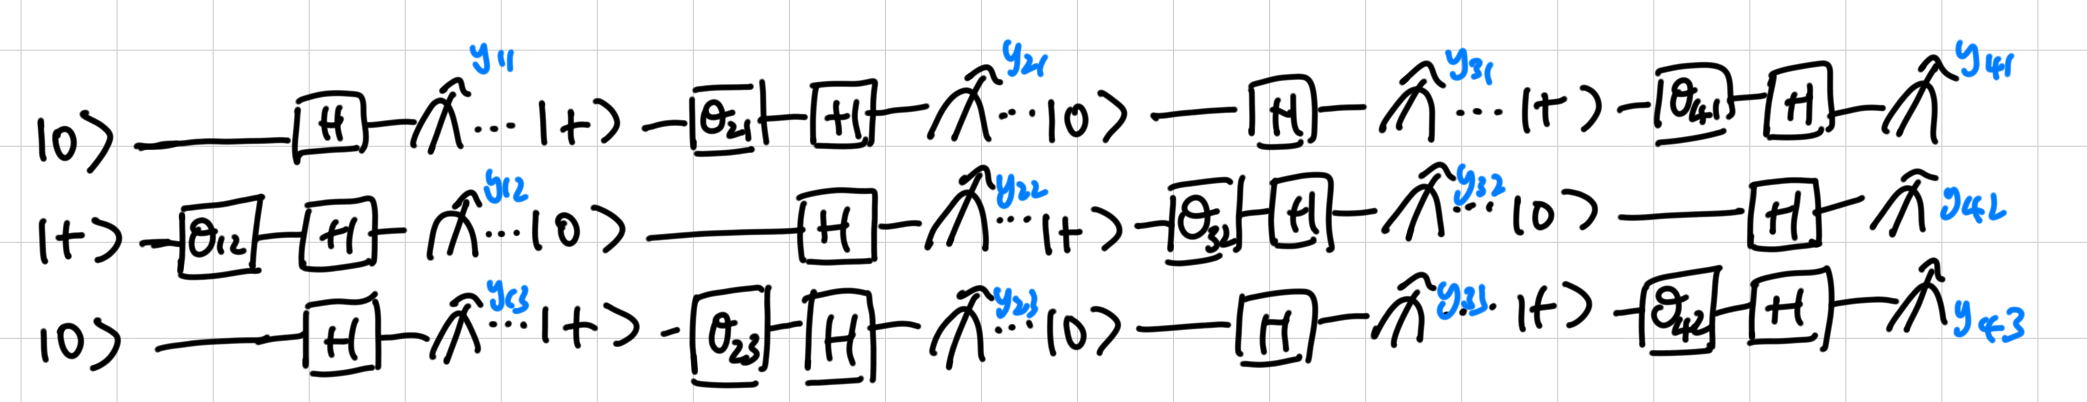 |0⟩ H y11 ... |+⟩ θ21 H y21 ... |0⟩ H y31 ... |+⟩ θ41 H y41
|+⟩ θ12 H y12 ... |0⟩ H y22 ... |+⟩ θ32 H y32 ... |0⟩ H y42
|0⟩ H y13 ... |+⟩ θ23 H y23 ... |0⟩ H y31 ... |+⟩ θ42 H y43